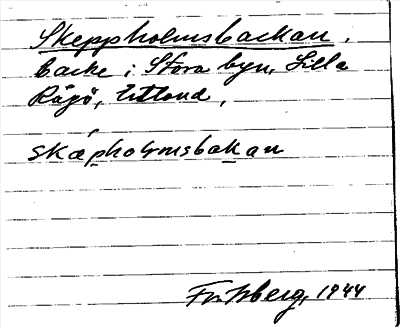 Skeppholmsbackan,
backe i Stora byn, Lilla
Rågö, Estland,
skæpholmsbakan
Fritzberg, 1944